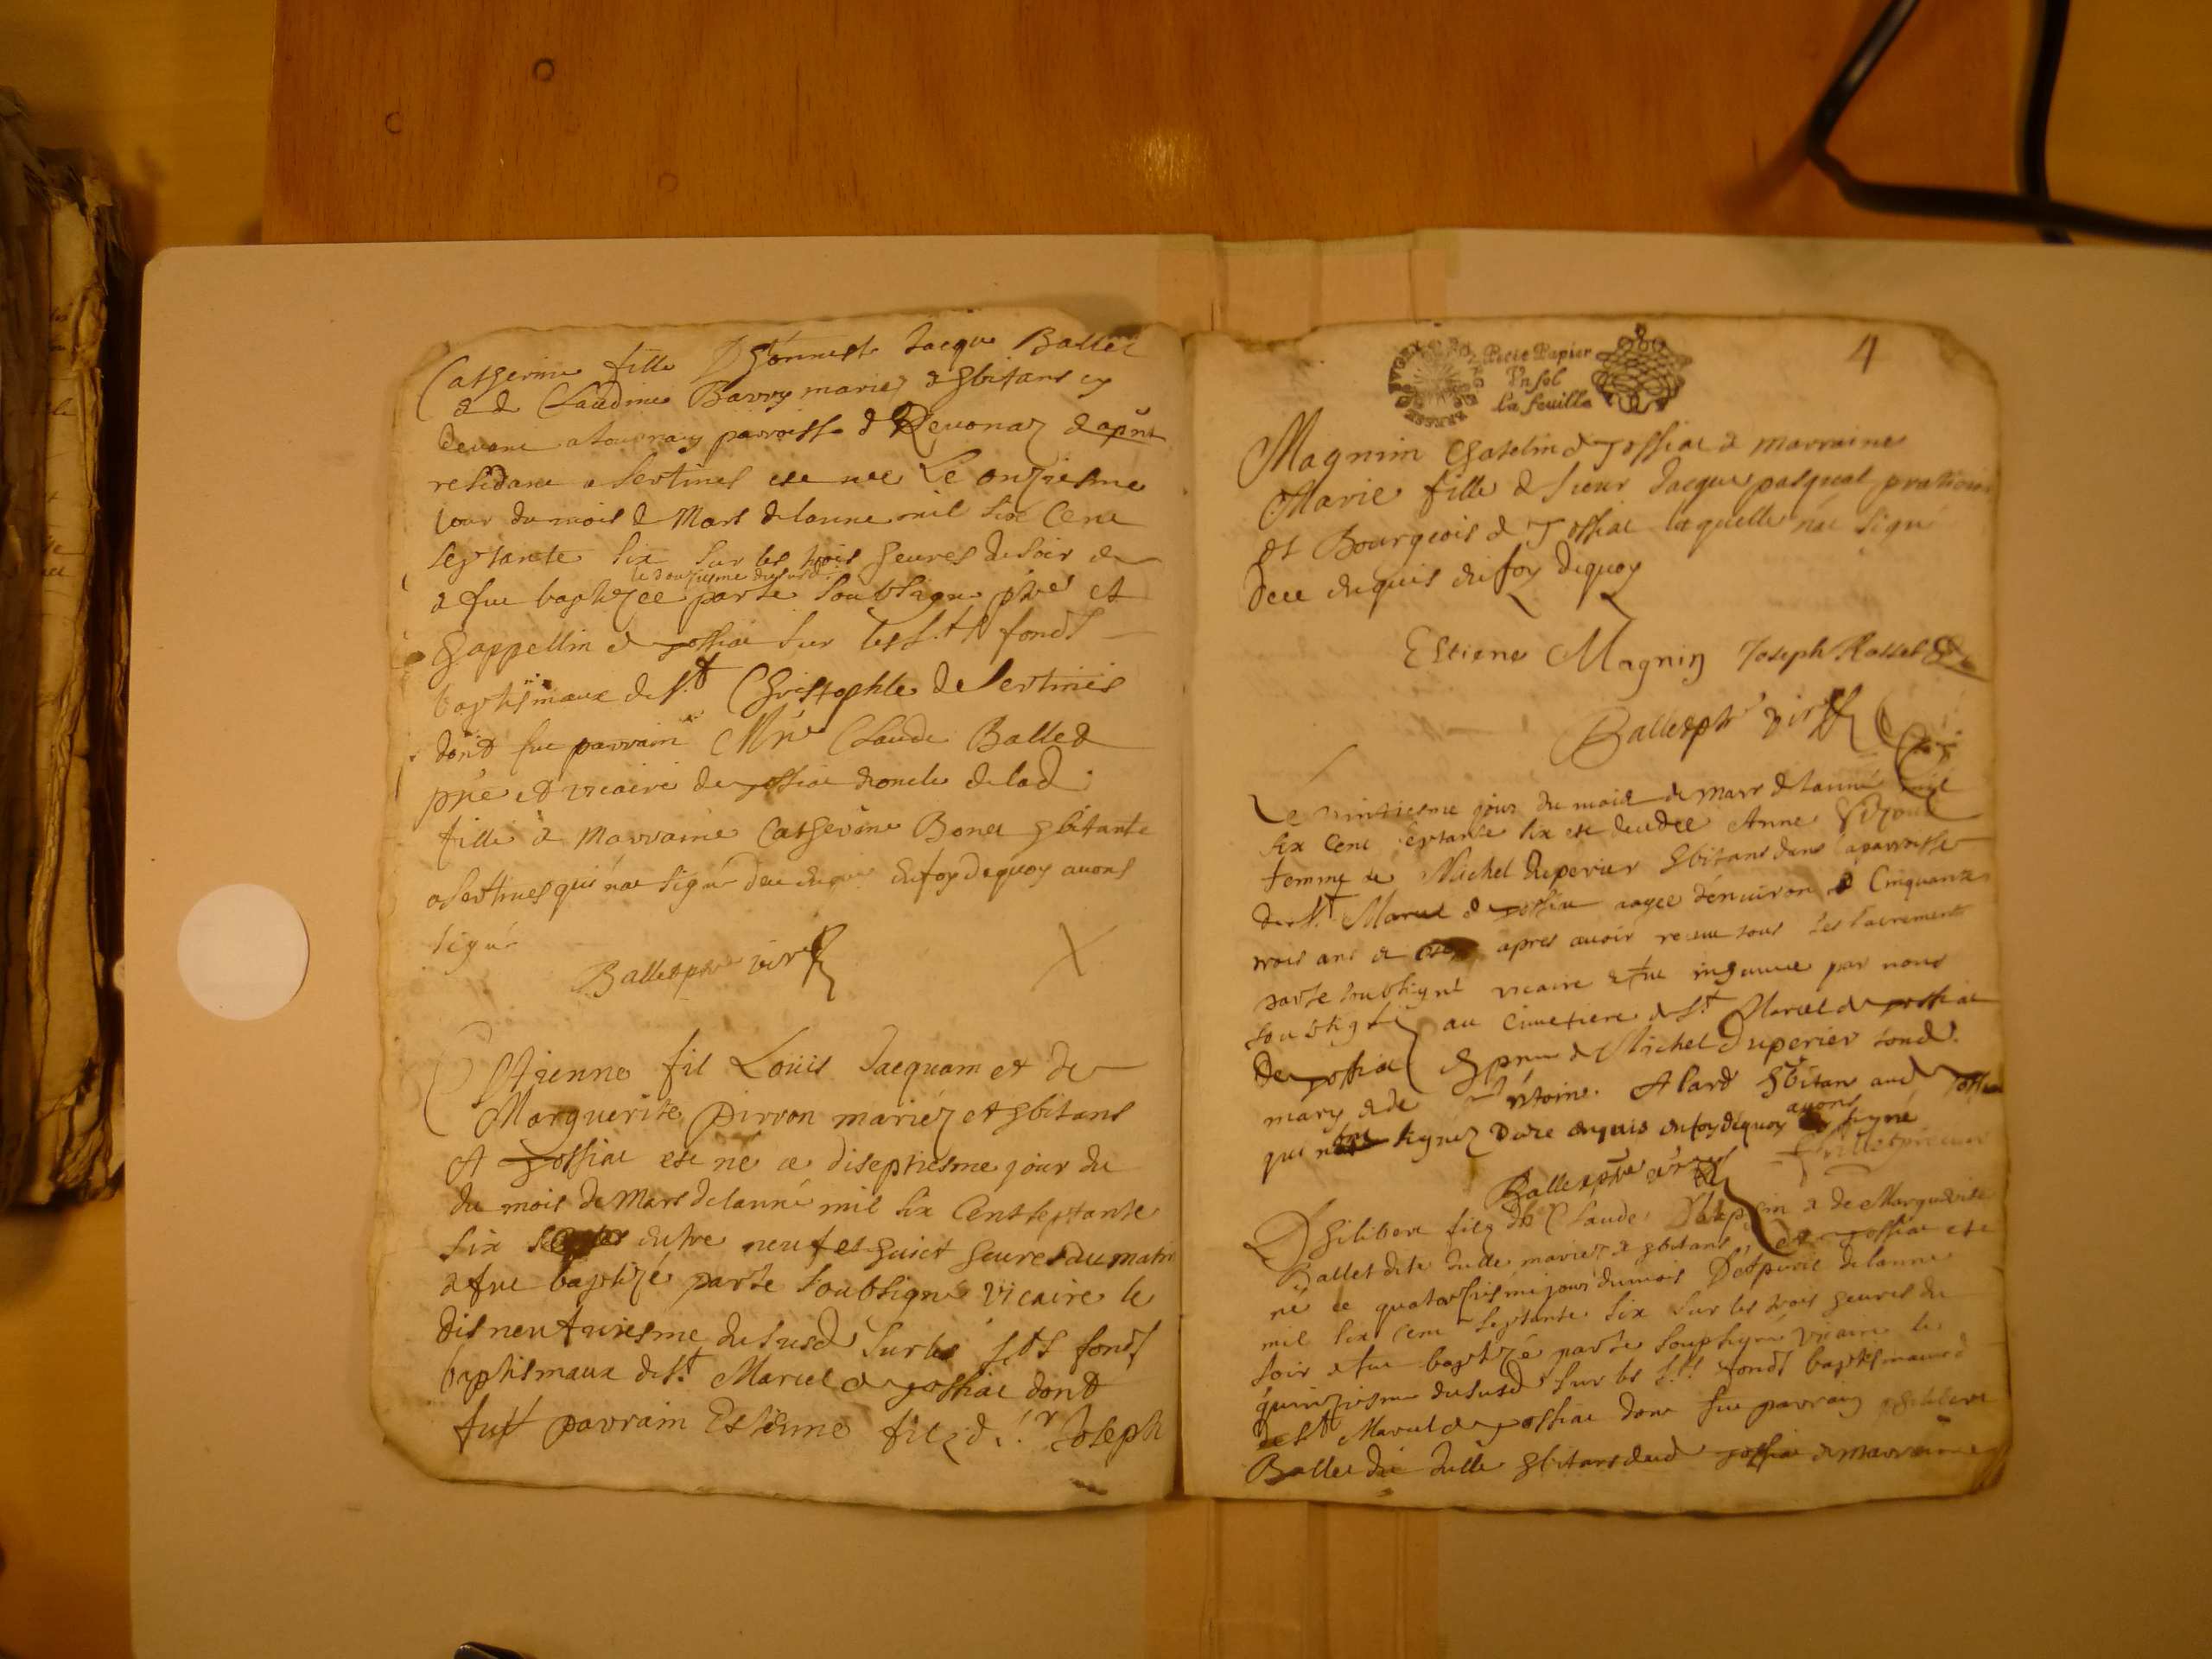 Catherine fille D honneste Jacque Ballet
& de Claudine Barry mariez & hbitans cy
devant a tournay parroisse de Revonaz & apñt
residans a Sertines est nee Le onziesme
jour du mois de Mars de lanne mil six cent
septante six sur les trois heures du soir &
le douziesme dususd.
a fue baptizee par le soubsigne pbre et
chappellin de Jossiac sur les Sts fonds
baptismaux de St Christophle de Sertines
dont fue parrain Mre Claude Ballet
pre et vicaire de Jossiac & oncle de lad
fille & marraine Catherine Bonet hbitante
a Sertines qui na signé deu enquis en foy de quoy avons
signé
Ballet pbre vire
Estienne fil Loüis Jacquam et de
Marguerite Pirron mariéz et hbitans
A Jossiac est né ce diseptiesme jour du
du mois de Mars de lanné mil six cent septante
six entre neuf et huict heures du matin
& fue baptizé par le soubsigne vicaire le
disneufviesme du susd sur les Sts fonds
baptismaux de St Marcel de Jossiac dont
fust parrain Estienne filz d Sr Joseph
4
Petit Papier
Vn sol
la feuille
Magnin Chatelin de Jossiac & marraine
Marie fille de sieur Jacque pasqual praticien
et Bourgeois de Jossiac laquelle na signé
deue enquis en foy dequoy
Estiene Magnin Joseph Rosset
Ballet pbr vire
Le vintiesme jour du mois de mars de lanné mil
six cent septante six est decedee Anne
femme de Michel Duperier hbitans dans la parroisse
de St Marcel de Jossiac aagee denuiron de Cinquante
trois ans & apres auoir receu tous les sacrements
par le soubsigné vicaire & fue inhumee par nous
soubsigné au cimetiere de St Marcel de Jossiac
de Jossiac En pnce de Michel Duperier sond.
mary & de Antoine Alard hbitans aud Jossiac
avons
qui nont signez de ce enquis en foy dequoy signé
Ballet pbre vire
Philibert filz de Claude & de Marguerite
Ballet dite Julle mariez & hbitans a Jossiac est
né ce quatorziesme jour du mois Dapuril de lanne
mil six cent septante six sur les trois heures du
soir & fue baptizé par le souphigné Vicaire le
quinziesme du susd sur les Sts fonds baptismaux
de St Marcel de Jossiac dont fue parrain philibert
Ballet dit Julle hbitans dud Jossiac & marraine